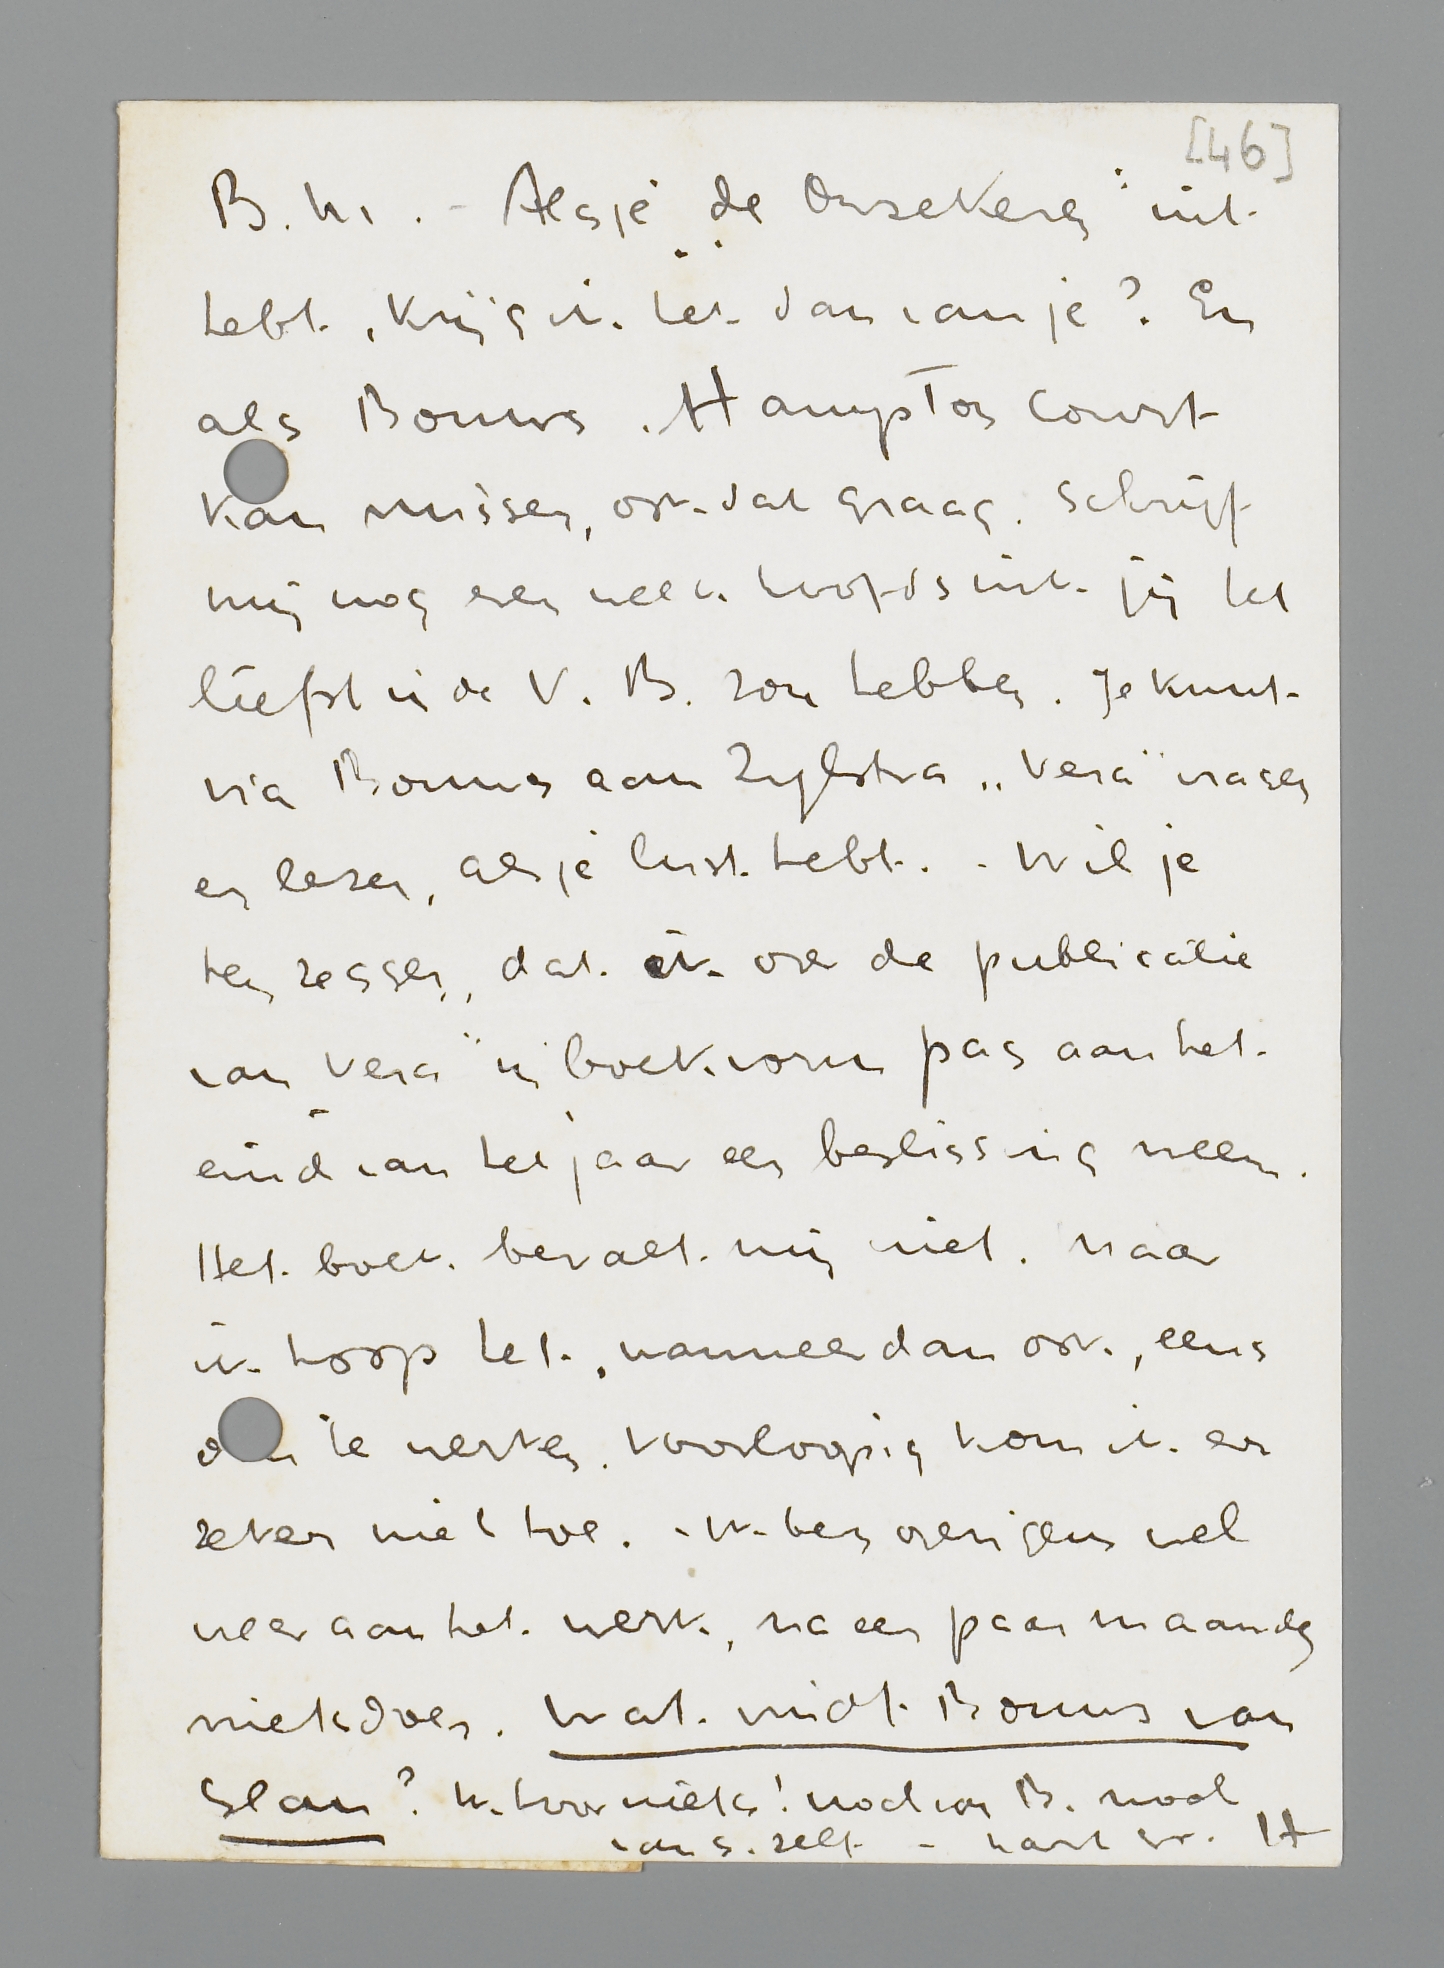 [46]
B. M. - Als je „de Onzekeren" uit
hebt, krijg ik het dan van je? En
als Bouws „Hampton Court
kan missen, ook dat graag. Schrijf
mij nog even welk hoofdstuk jij het
liefst in de V. B. zou hebben. Je kunt
via Bouws aan Zijlstra „Vera" vragen
en lezen, als je lust hebt. - Wil je
hen zeggen, dat ik over de publicatie
van „Vera" in boekvorm pas aan het
eind van het jaar een beslissing neem.
Het boek bevalt mij niet. Maar
ik hoop het, wanneer dan ook, eens
om te werken. Voorloopig kom ik er
zeker niet toe. - Ik ben overigens wel
weer aan het werk, na een paar maanden
nietsdoen. Wat vindt Bouws van
Slau? Ik hoor niets! noch van B. noch
van S. zelf. - hart. gr. H